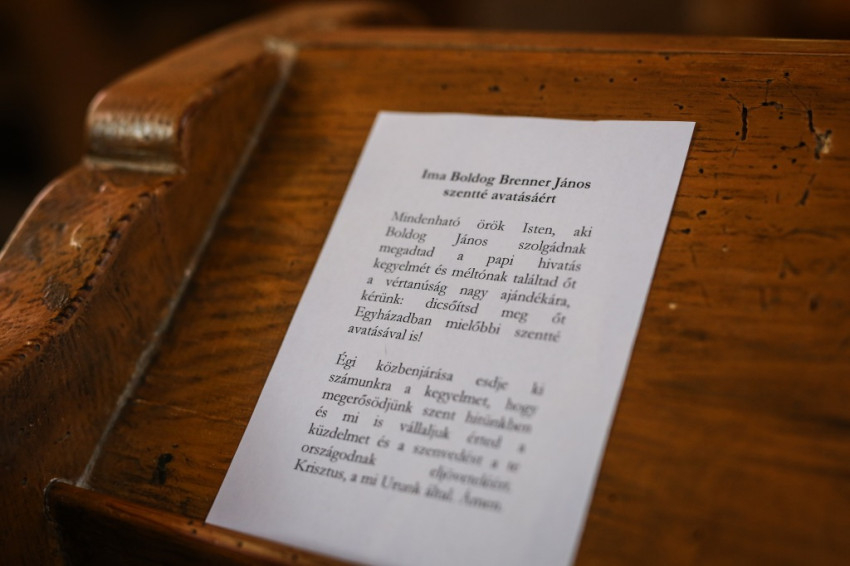 Ima Boldog Brenner János
szentté avatásáért
Mindenható örök Isten, aki
Boldog János szolgádnak
megadtad a papi hivatás
kegyelmét és méltónak találtad őt
a vértanúság nagy ajándékára,
kérünk: dicsőítsd meg őt
Egyházadban mielőbbi szentté
avatásával is!
Égi közbenjárása esdje ki
számunkra a kegyelmet, hogy
megerősödjünk szent hitünkben
és mi is vállaljuk érted a
küzdelmet és a szenvedést a te
országodnak eljöveteléért.
Krisztus, a mi Urunk által. Ámen.